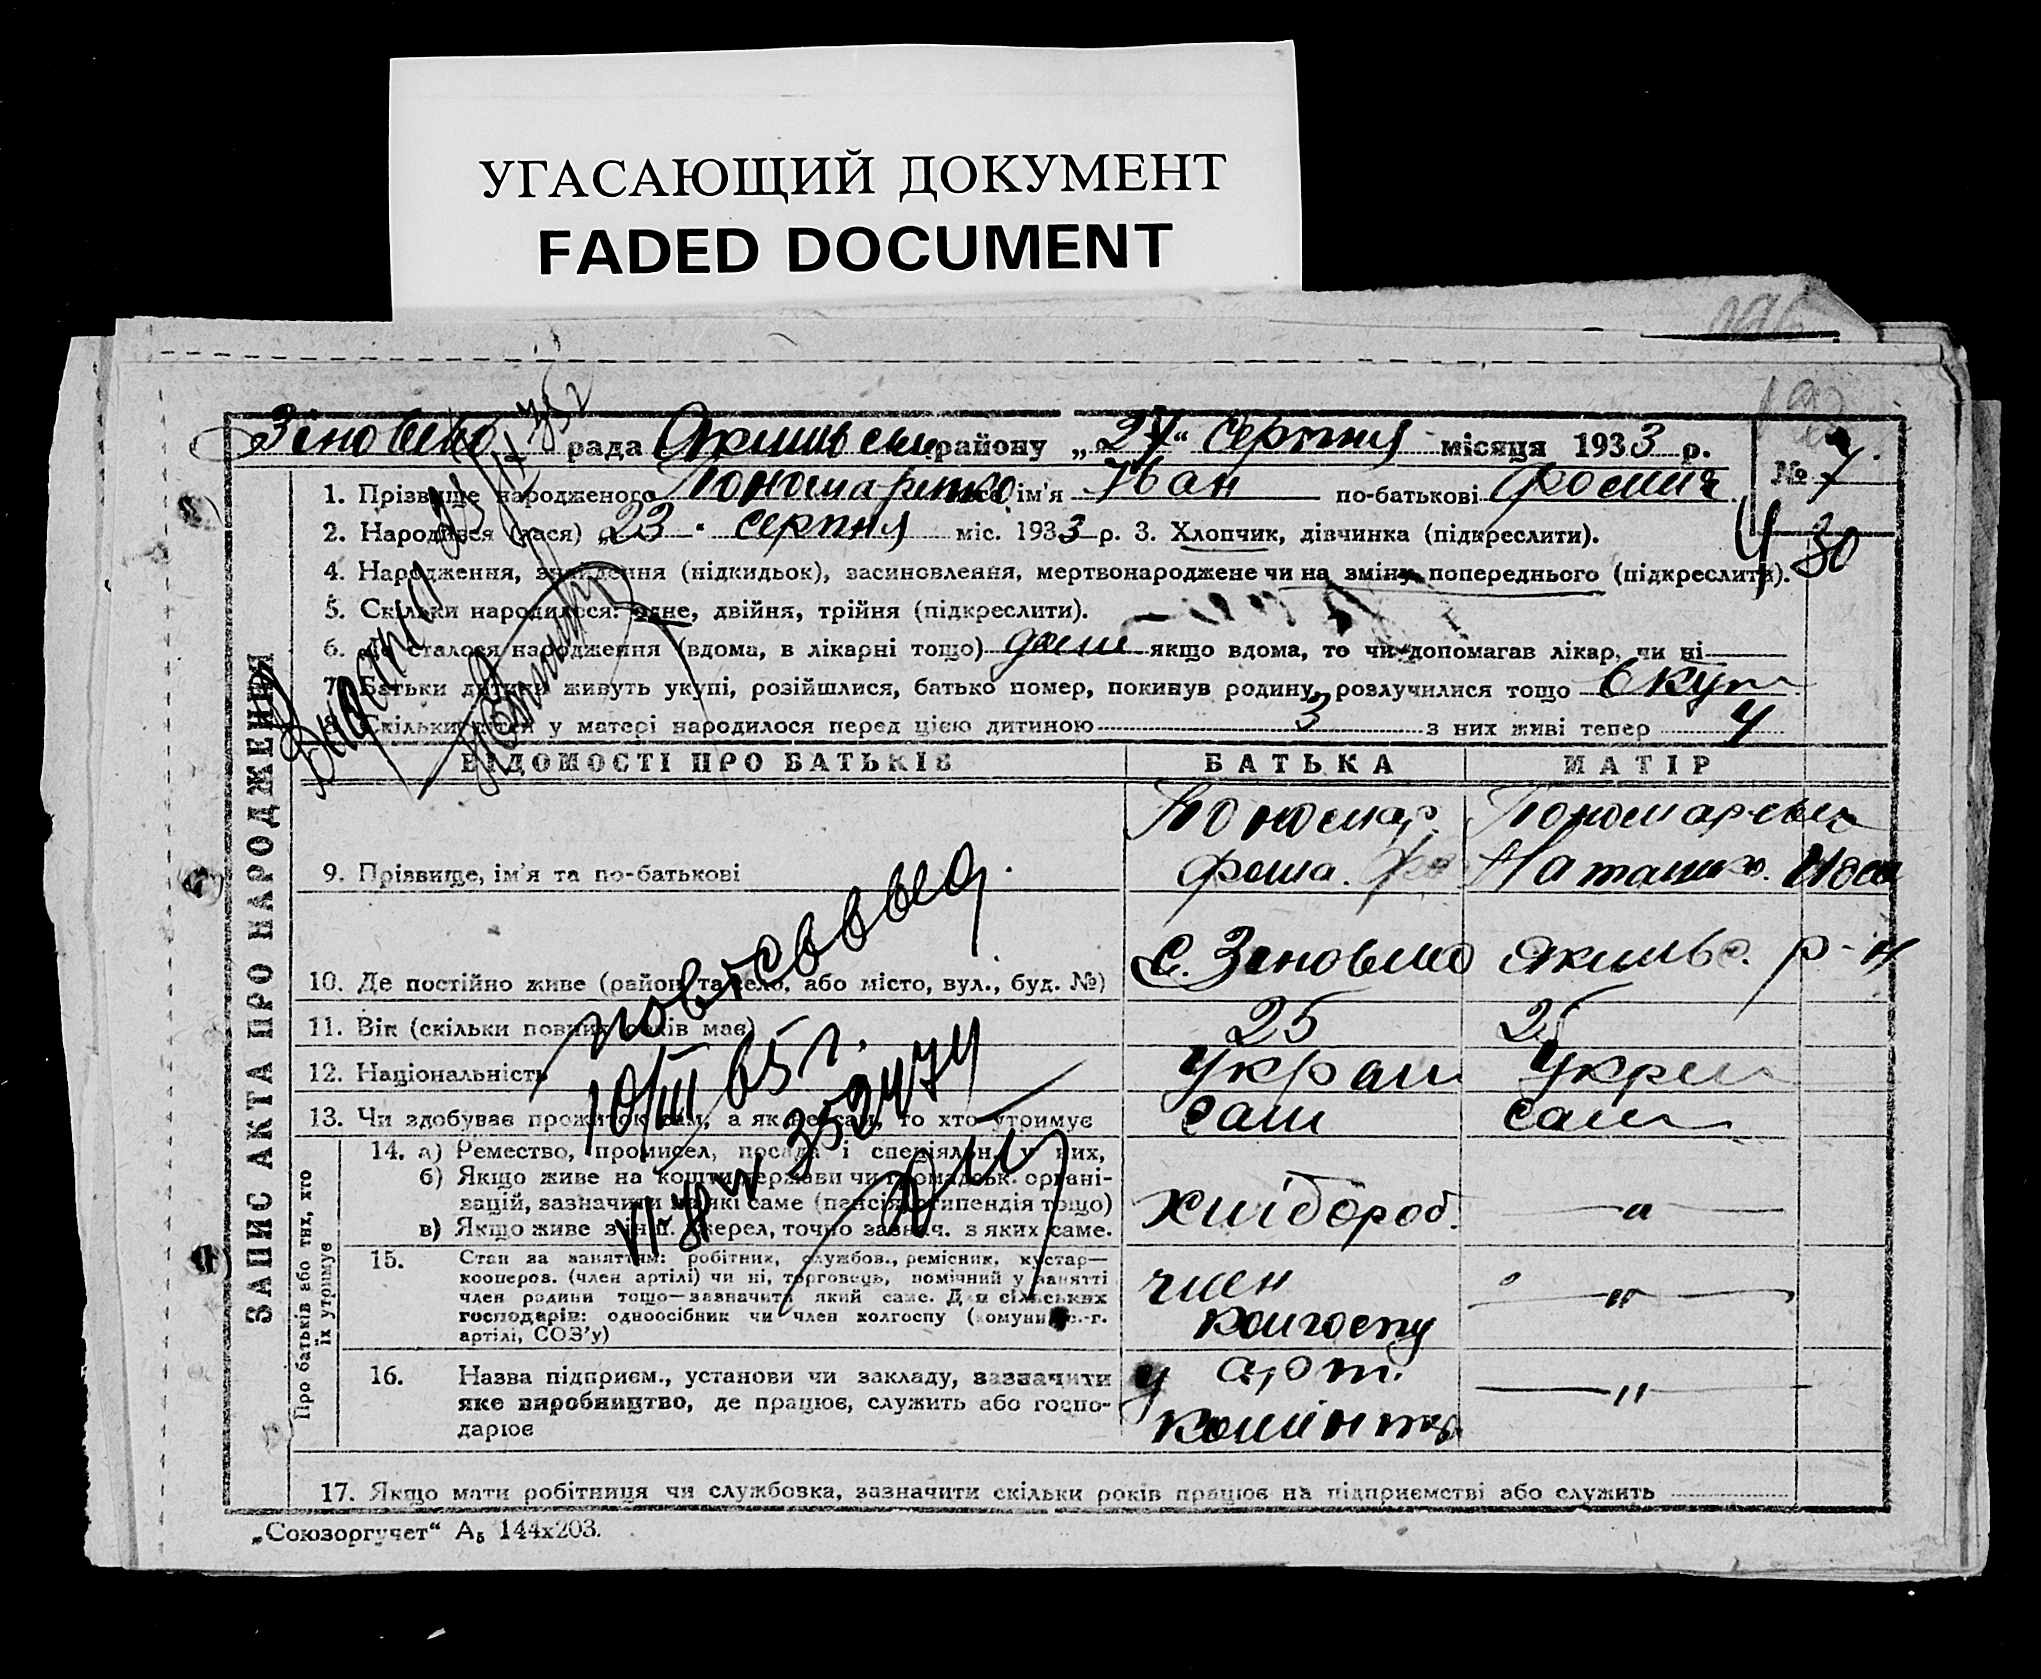 УГАСАЮЩИЙ ДОКУМЕНТ
FADED DOCUMENT
рада району „27“ серпня місяця 1933 р.
№ 7
1. Прізвище народженого Пономаренко ім'я Іван по-батькові
2. Народився (лася) „23 серпня міс. 1933 р. 3. Хлопчик, дівчинка (підкреслити).
30
4. Народження, знайдення (підкидьок), засиновлення, мертвонароджене чи на зміну попереднього (підкреслити).
5. Скільки народилося: одне, двійня, трійня (підкреслити).
6. Де сталося народження (вдома, в лікарні тощо) якщо вдома, то чи допомагав лікар, чи ні
7. Батьки дитини живуть укупі, розійшлися, батько помер, покинув родину, розлучилися тощо
8. Скільки дітей у матері народилося перед цією дитиною 3 з них живі тепер 4
ЗАПИС АКТА ПРО НАРОДЖЕННЯ
ВІДОМОСТІ ПРО БАТЬКІВ БАТЬКА МАТІР
Пономар.
9. Прізвище, ім'я та по-батькові
повт. свовыд.
10. Де постійно живе (район та село, або місто, вул., буд. №) с. р-н
11. Вік (скільки повних років має) 25 25
10/III 65 г.
12. Національність
352474
13. Чи здобуває прожиток сам, а як не сам, то хто утримує сам сам
Про батьків або тих, хто їх утримує
14. а) Ремество, промисел, посада і спеціяльн. у них,
б) Якщо живе на кошти держави чи громадськ. органі-
зацій, зазначити на які саме (пенсія, стипендія тощо)
в) Якщо живе з інш. джерел, точно зазнач. з яких саме.
хлібороб. — „ —
15. Стан за заняттям: робітник, службов., ремісник, кустар—
кооперов. (член артілі) чи ні, торговець, помічний у занятті
член родини тощо—зазначити який саме. Для сільських
господарів: одноосібник чи член колгоспу (комуни, с.-г.
артілі, СОЗ'у)
член
колгоспу
— „ —
16. Назва підприєм., установи чи закладу, зазначити
яке виробництво, де працює, служить або госпо-
дарює
у арт.
— „ —
17. Якщо мати робітниця чи службовка, зазначити скільки років працює на підприємстві або служить
„Союзоргучет“ А₅ 144х203.